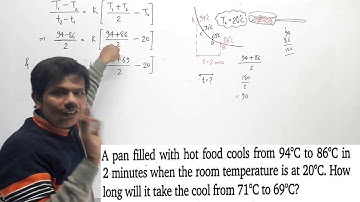 T₁ - T₂
t₂ - t₁
= K [ T₁ + T₂
2
- T₀ ]
⇒ 94-86
2
= K [ 94+86
2
- 20 ]
+69
2
- 20 ]
94°C
T₀ = 20°C
86°C
t = 2 min
t = ?
94+86
2
180
2
= 90
94
86
180
A pan filled with hot food cools from 94°C to 86°C in
2 minutes when the room temperature is at 20°C. How
long will it take the cool from 71°C to 69°C?